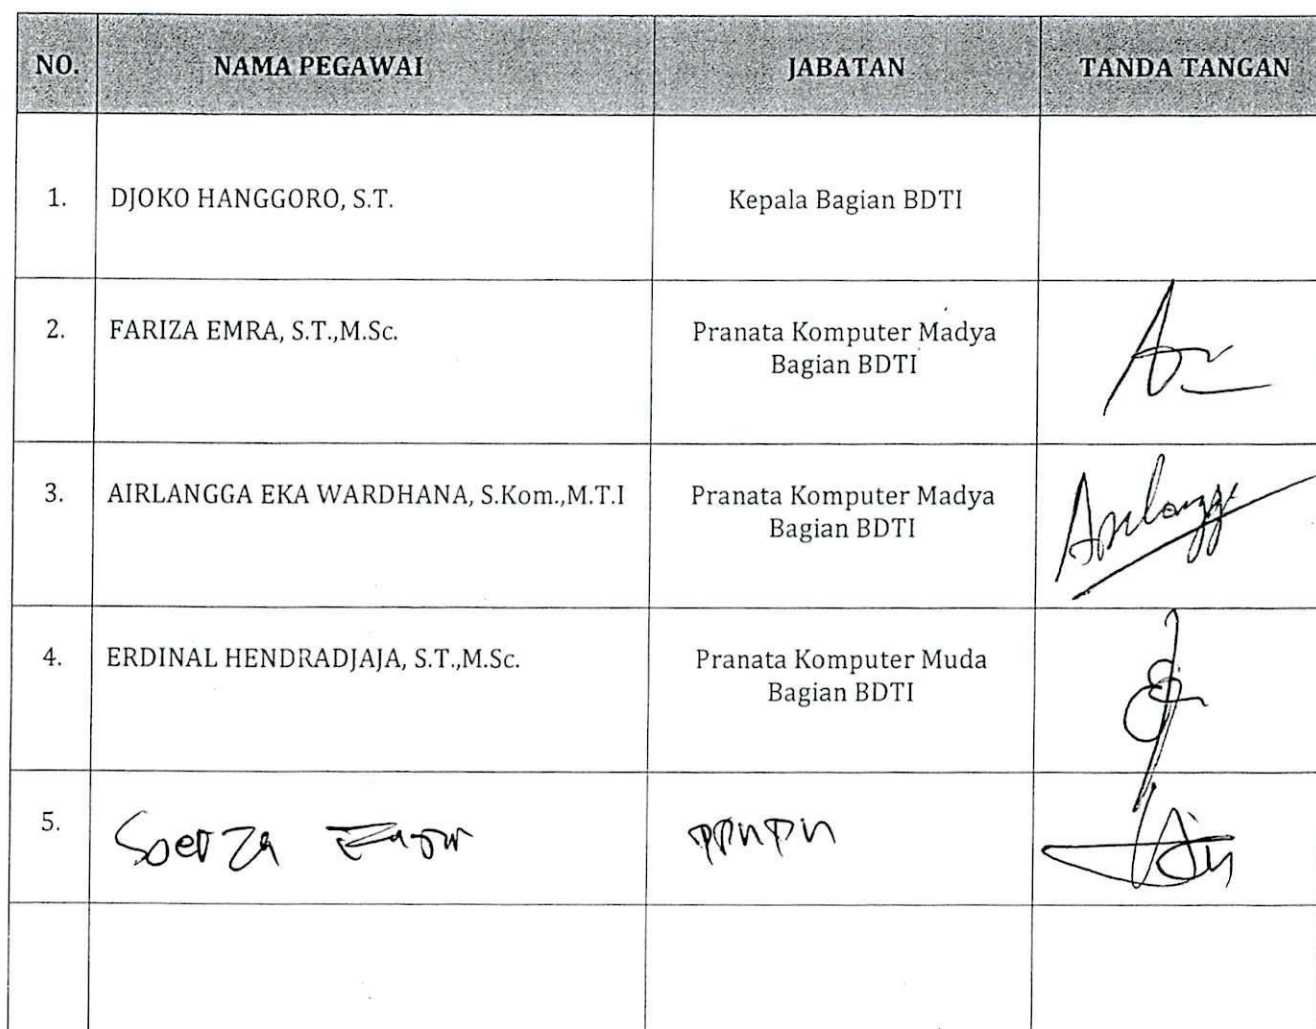 NO. NAMA PEGAWAI JABATAN TANDA TANGAN
1. DJOKO HANGGORO, S.T. Kepala Bagian BDTI
2. FARIZA EMRA, S.T.,M.Sc. Pranata Komputer Madya
Bagian BDTI
3. AIRLANGGA EKA WARDHANA, S.Kom.,M.T.I Pranata Komputer Madya
Bagian BDTI
4. ERDINAL HENDRADJAJA, S.T.,M.Sc. Pranata Komputer Muda
Bagian BDTI
5. PPNPN